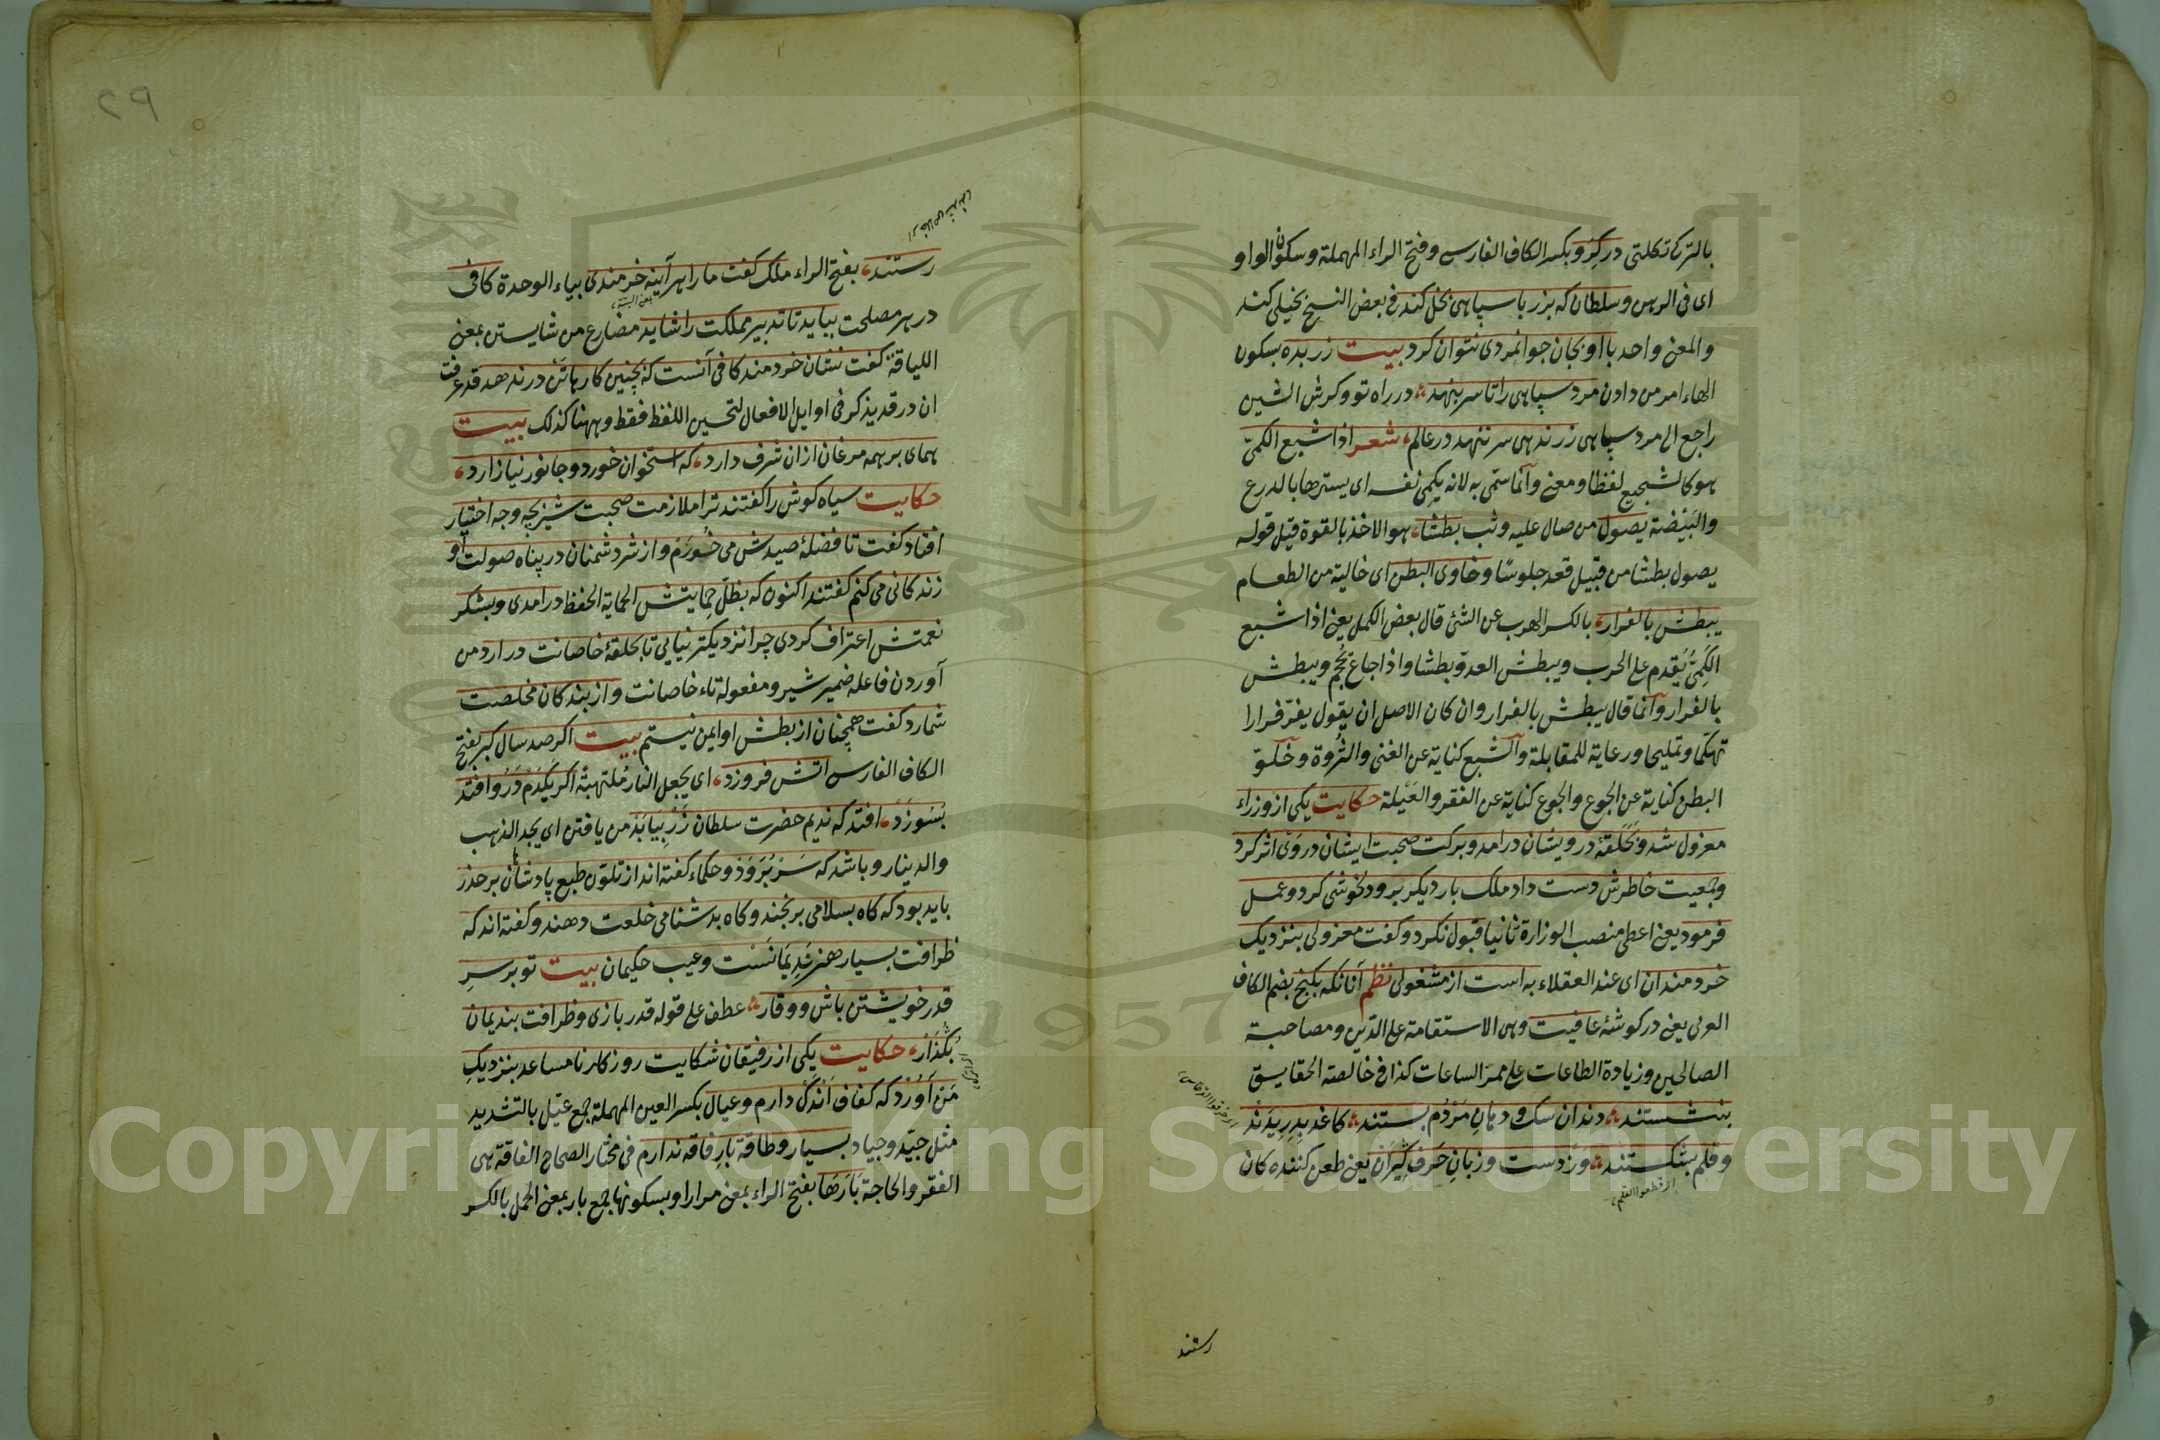 بالترکی تکلتی در گرو بکسر الکاف الفارسی و فتح الراء المهملة و سکون الواو
ای فی الرهن و سلطان که بزر با سپاهی بخل کند فی بعض النسخ بخیلی کند
والمعنی واحد با او بجان جوانمردی نتوان کرد بیت زر بده بسکون
الهاء امر من دادن مرد سپاهی را تا سر بنهد در راه تو و کرش الشین
راجع الی مرد سپاهی زر ندهی سر بنهد در عالم شعر اذا شبع الکمیّ
هو کالشجیع لفظا و معنی و انما سمّی به لانه یکمی نفسه ای یسترها بالدرع
والبَیْضة یصول من صال علیه وثب بطشا هو الاخذ بالقوة قیل قوله
یصول بطشا من قبیل قعد جلوسًا و خاوی البطن ای خالیة من الطعام
یبطش بالفرار بالکسر الهرب عن الشئ قال بعض الکمل یعنی اذا شبع
الکمیُّ یُقدم علی الحرب و یبطش العدوّ بطشا و اذا جاع یُحجم و یبطش
بالفرار و انما قال یبطش بالفرار و ان کان الاصل ان یقول یفرّ فرارا
تهکّما و تملیحا و رعایة للمقابلة و الشبع کنایة عن الغنی والثروة و خلوّ
البطن کنایة عن الجوع والجوع کنایة عن الفقر والعَیْلة حکایت یکی از وزراء
معزول شد و بحلقهٔ درویشان درامد و برکت صحبت ایشان در وی اثر کرد
و جمعیت خاطرش دست داد ملک بار دیکر برو دلخوشی کرد و عمل
فرمود یعنی اعطی منصب الوزارة ثانیا قبول نکرد و کفت معزولی بنزدیک
خردمندان ای عند العقلاء به است از مشغولی نظم آنانکه بکنج بضم الکاف
العربی یعنی در کوشهٔ عافیت وهی الاستقامة علی الدین و مصاحبة
الصالحین و زیادة الطاعات علی ممرّ الساعات کذا فی خالصة الحقایق
بنشستند دندان سک و دهانِ مَرْدُم بستند کاغد بدریدند
و قلم بشکستند وز دست و زبانِ حَرف کیران یعنی طعن کننده کان
ای قطعوا القلم
رستند
از خلاص شدنی
رستند بفتح الراء ملک کفت ما را هر آینه خرمندی بیاء الوحدة کافی
یعنی البتّه
در هر مصلحت بباید تا تدبیر مملکت را شاید مضارع من شایستن بمعنی
اللیاقة کفت نشان خردمند کافی آنست که بچنین کارها تن در ندهد قد عرفت
ان در قد یذکر فی اوایل الافعال لتحسین اللفظ فقط و ههنا کذلک بیت
همای بر همه مرغان از ان شرف دارد که استخوان خورد و جانور نیازارد
حکایت سیاه کوش را کفتند ترا ملازمت صحبت شیر بچه وجه اختیار
افتاد کفت تا فضلهٔ صیدش می خورَم و از شر دشمنان در پناه صولت او
زندکانی می کنم کفتند اکنون که بظلّ حمایتش الحمایة الحفظ درامدی و بشکر
نعمتش اعتراف کردی چرا نزدیکتر نیایی تا بحلقهٔ خاصانت درارد من
آوردن فاعله ضمیر شیر و مفعوله تاء خاصانت و از بندکان مخلصت
شمارد کفت همچنان از بطش او ایمن نیستم بیت اکر صد سال کبر بفتح
الکاف الفارسی اتش فروزد ای یجعل النار مُلتهبة اکر یَکدَمْ دَرُو افتد
بسُوزَد افتد که ندیم حضرت سلطان زَرْ بیابَد من یافتن ای یجد الذهب
والدینار و باشد که سَرْ بُرَوَد و حکماء کفته اند از تلوّن طبع پادشاهان بر حذر
باید بود که کاه بسلامی برنجند و کاه بدشنامی خلعت دهند و کفته اند که
ظرافت بسیار هنر نَدیمانَسْت و عیب حکیمان بیت تو بر سرِ
قدر خویشتن باش و وقار عطف علی قوله قدر بازی و ظرافت بندیمان
بکذار حکایت یکی از رفیقان شکایت روزکار نامساعد بنزدیکِ
مَن آوُرْد که کفاف اَنْدَک دارم و عیال بکسر العین المهملة جمع عیّل بالتشدید
مثل جیّد و جیاد بسیار و طاقة بارِ فاقه ندارم فی مختار الصحاح الفاقة هی
الفقر والحاجة بارَها بفتح الراء بمعنی مرارا و بسکونها جمع بار بمعنی الحمل بالکسر